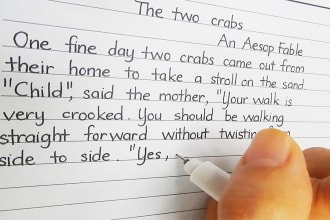 The two crabs
An Aesop fable
One fine day two crabs came out from
their home to take a stroll on the sand.
"Child", said the mother, "Your walk is
very crooked. You should be walking
straight forward without twisting
side to side. "Yes,